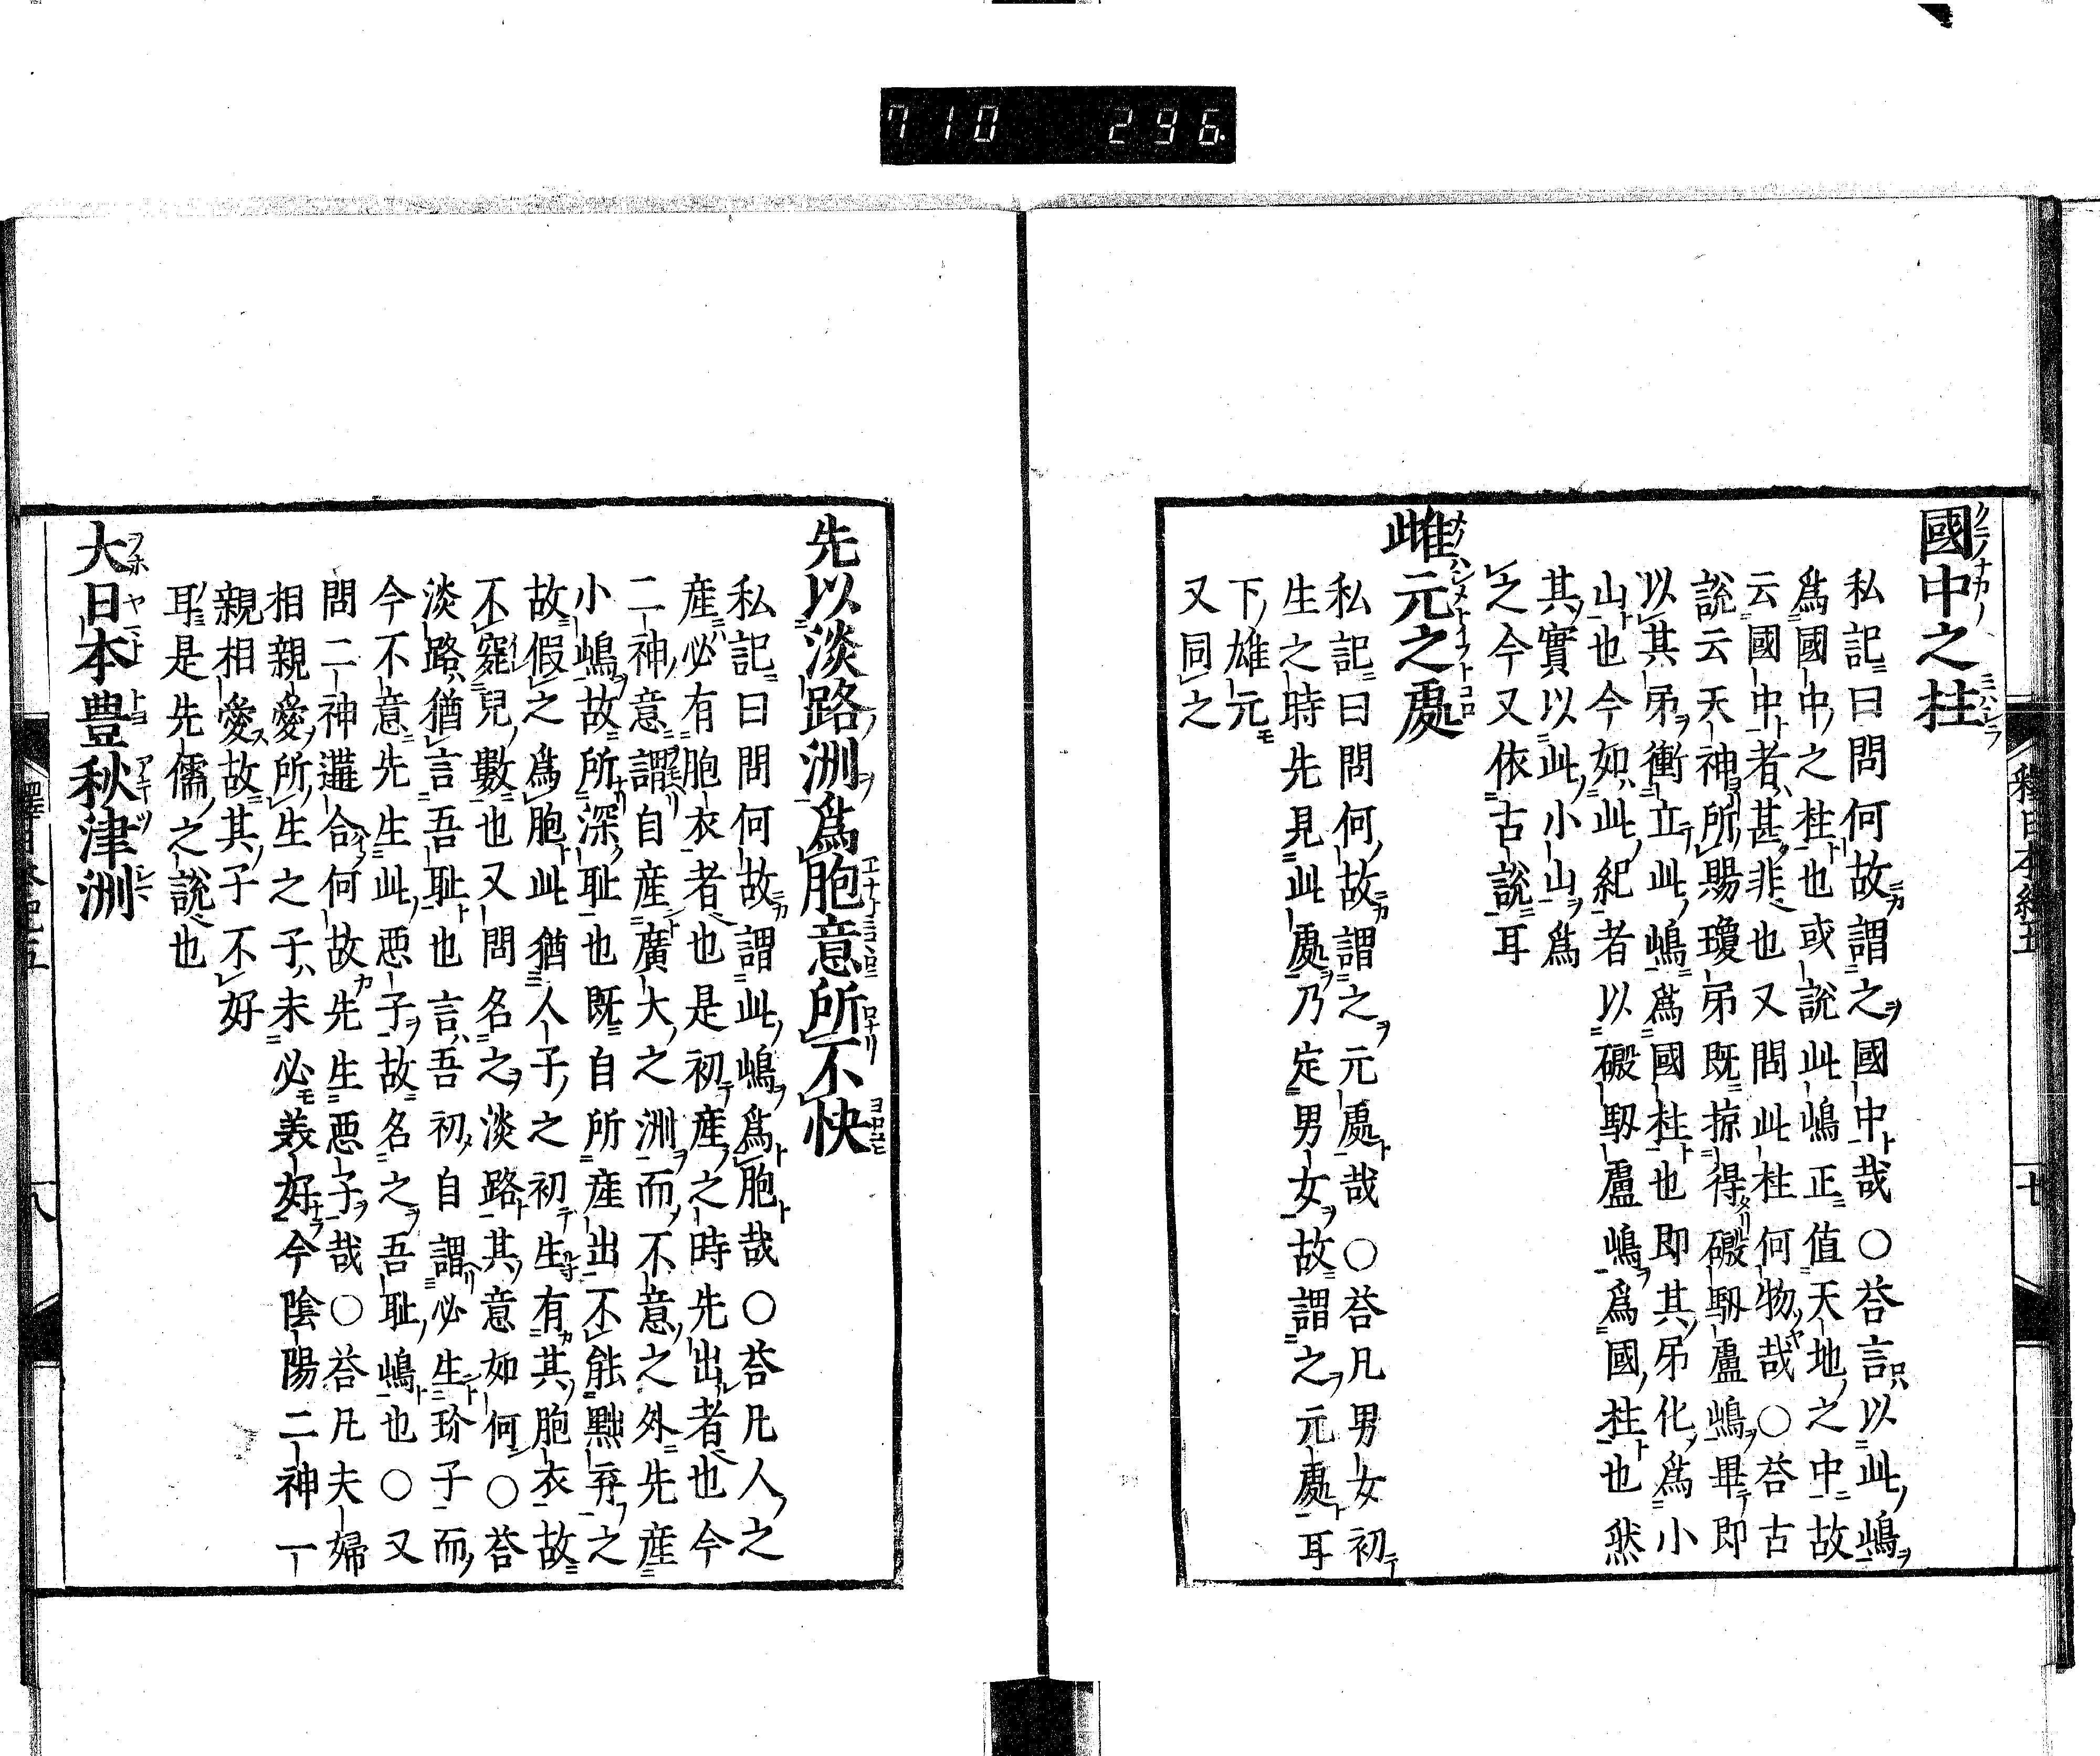 710 296.
國中之柱
私記曰問何故謂之國中哉○荅言以此嶋
爲國中之柱也或說此嶋正值天地之中故
云國中者甚非也又問此柱何物哉○荅古
說云天神所賜瓊矛既探得磤馭盧嶋畢即
以其矛衝立此嶋爲國柱也即其矛化爲小
山也今如此紀者以磤馭盧嶋爲國柱也然
其實以此小山爲
之今又依古說耳
雌元之處
私記曰問何故謂之元處哉○荅凡男女初
生之時先見此處乃定男女故謂之元處耳
下雄元
又同之
先以淡路洲爲胞意所不快
私記曰問何故謂此嶋爲胞哉○荅凡人之
産必有胞衣者也是初産之時先出者也今
二神意謂自産廣大之洲而不意之外先産
小嶋故所深耻也既自所産出不能黙弃之
故假之爲胞此猶人子之初生有其胞衣故
不寵兒數也又問名之淡路其意如何○荅
淡路猶言吾耻也言吾初自謂必生珍子而
今不意先生此惡子故名之吾耻嶋也○又
問二神遘合何故先生惡子哉○荅凡夫婦
相親愛所生之子未必美好今陰陽二神一
親相愛故其子不好
耳是先儒之說也
大日本豊秋津洲